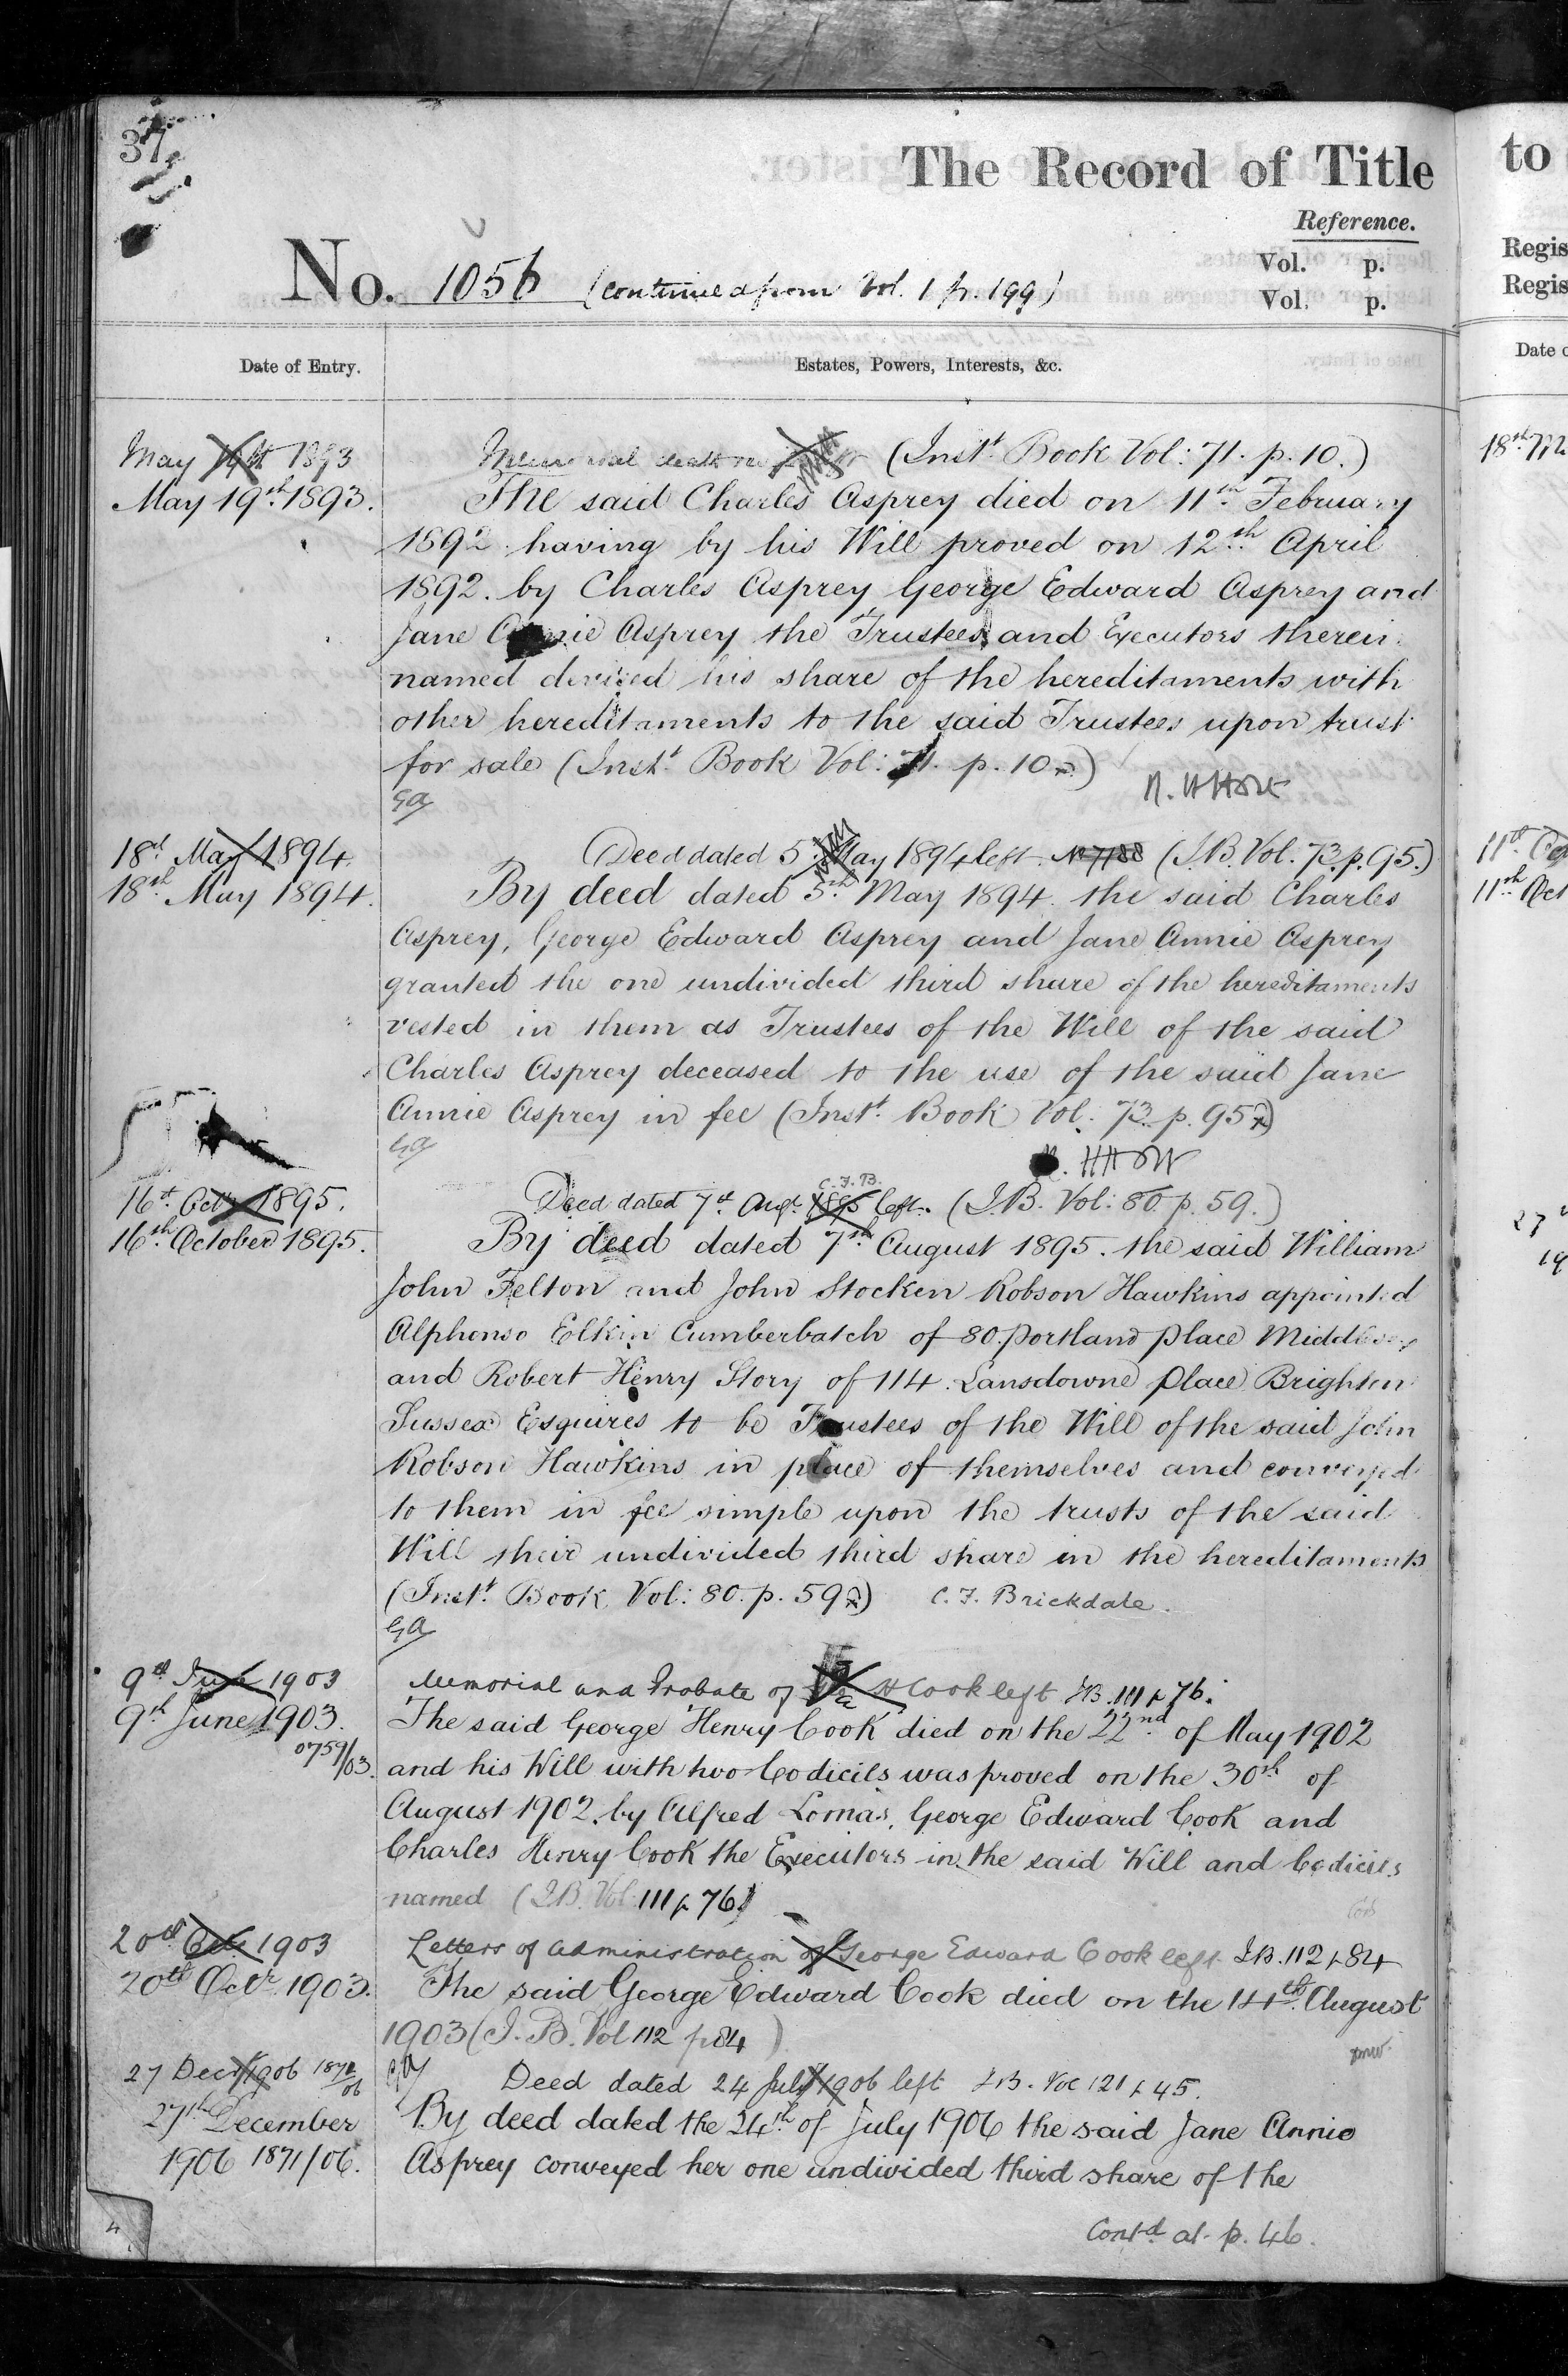 37
The Record of Title
Reference.
Vol. p.
Vol. p.
No. 1056 (continued from Vol. 1 p. 199)
Date of Entry.
Estates, Powers, Interests, &c.
May 1893
(Inst.t Book Vol: 71. p. 10.)
May 19th 1893.
The said Charles Asprey died on 11th February
1892 having by his Will proved on 12th April
1892. by Charles Asprey George Edward Asprey and
Jane Annie Asprey the Trustees and Executors therein
named devised his share of the hereditaments with
other hereditaments to the said Trustees upon trust
for sale (Inst.t Book Vol: 71. p. 10.)
GA
18th May 1894.
Deed dated 5th May 1894 left. No 7188 (I.B. Vol. 73. p. 95.)
18th May 1894.
By deed dated 5th May 1894. the said Charles
Asprey, George Edward Asprey and Jane Annie Asprey
granted the one undivided third share of the hereditaments
vested in them as Trustees of the Will of the said
Charles Asprey deceased to the use of the said Jane
Annie Asprey in fee (Inst.t Book Vol. 73. p. 95)
GA
C.F.B.
16th Octr 1895.
Deed dated 7th Augt. 1895 left. (I.B. Vol: 80. p. 59.)
16th October 1895.
By deed dated 7th August 1895. the said William
John Felton and John Stocken Robson Hawkins appointed
Alphonso Elkin Cumberbatch of 80. Portland Place Middlesex
and Robert Henry Story of 114. Lansdowne Place Brighton
Sussex Esquires to be Trustees of the Will of the said John
Robson Hawkins in place of themselves and conveyed
to them in fee simple upon the trusts of the said
Will their undivided third share in the hereditaments
(Inst.t Book Vol: 80. p. 59) C. F. Brickdale.
GA
9th June 1903
Memorial and Probate of H Cook left I.B. 111 p 76.
9th June 1903.
0759/03.
The said George Henry Cook died on the 22nd of May 1902
and his Will with two Codicils was proved on the 30th of
August 1902. by Alfred Lomas, George Edward Cook and
Charles Henry Cook the Executors in the said Will and Codicils
named (I.B. Vol 111 p 76)
20th Oct. 1903
Letters of Administration of George Edward Cook left I.B. 112 p 84
20th Octr. 1903.
The said George Edward Cook died on the 14th August
1903 (I. B. Vol 112 p 84 )
GA
27 Decr 1906 1871/06
Deed dated 24 July 1906 left I.B. Vol 121 p 45.
27th December
1906 1871/06.
By deed dated the 24th of July 1906 the said Jane Annie
Asprey conveyed her one undivided third share of the
Contd at p. 46.
4
to
Regis
Regis
Date o
18th
11th Oc
11th Oct
27
19